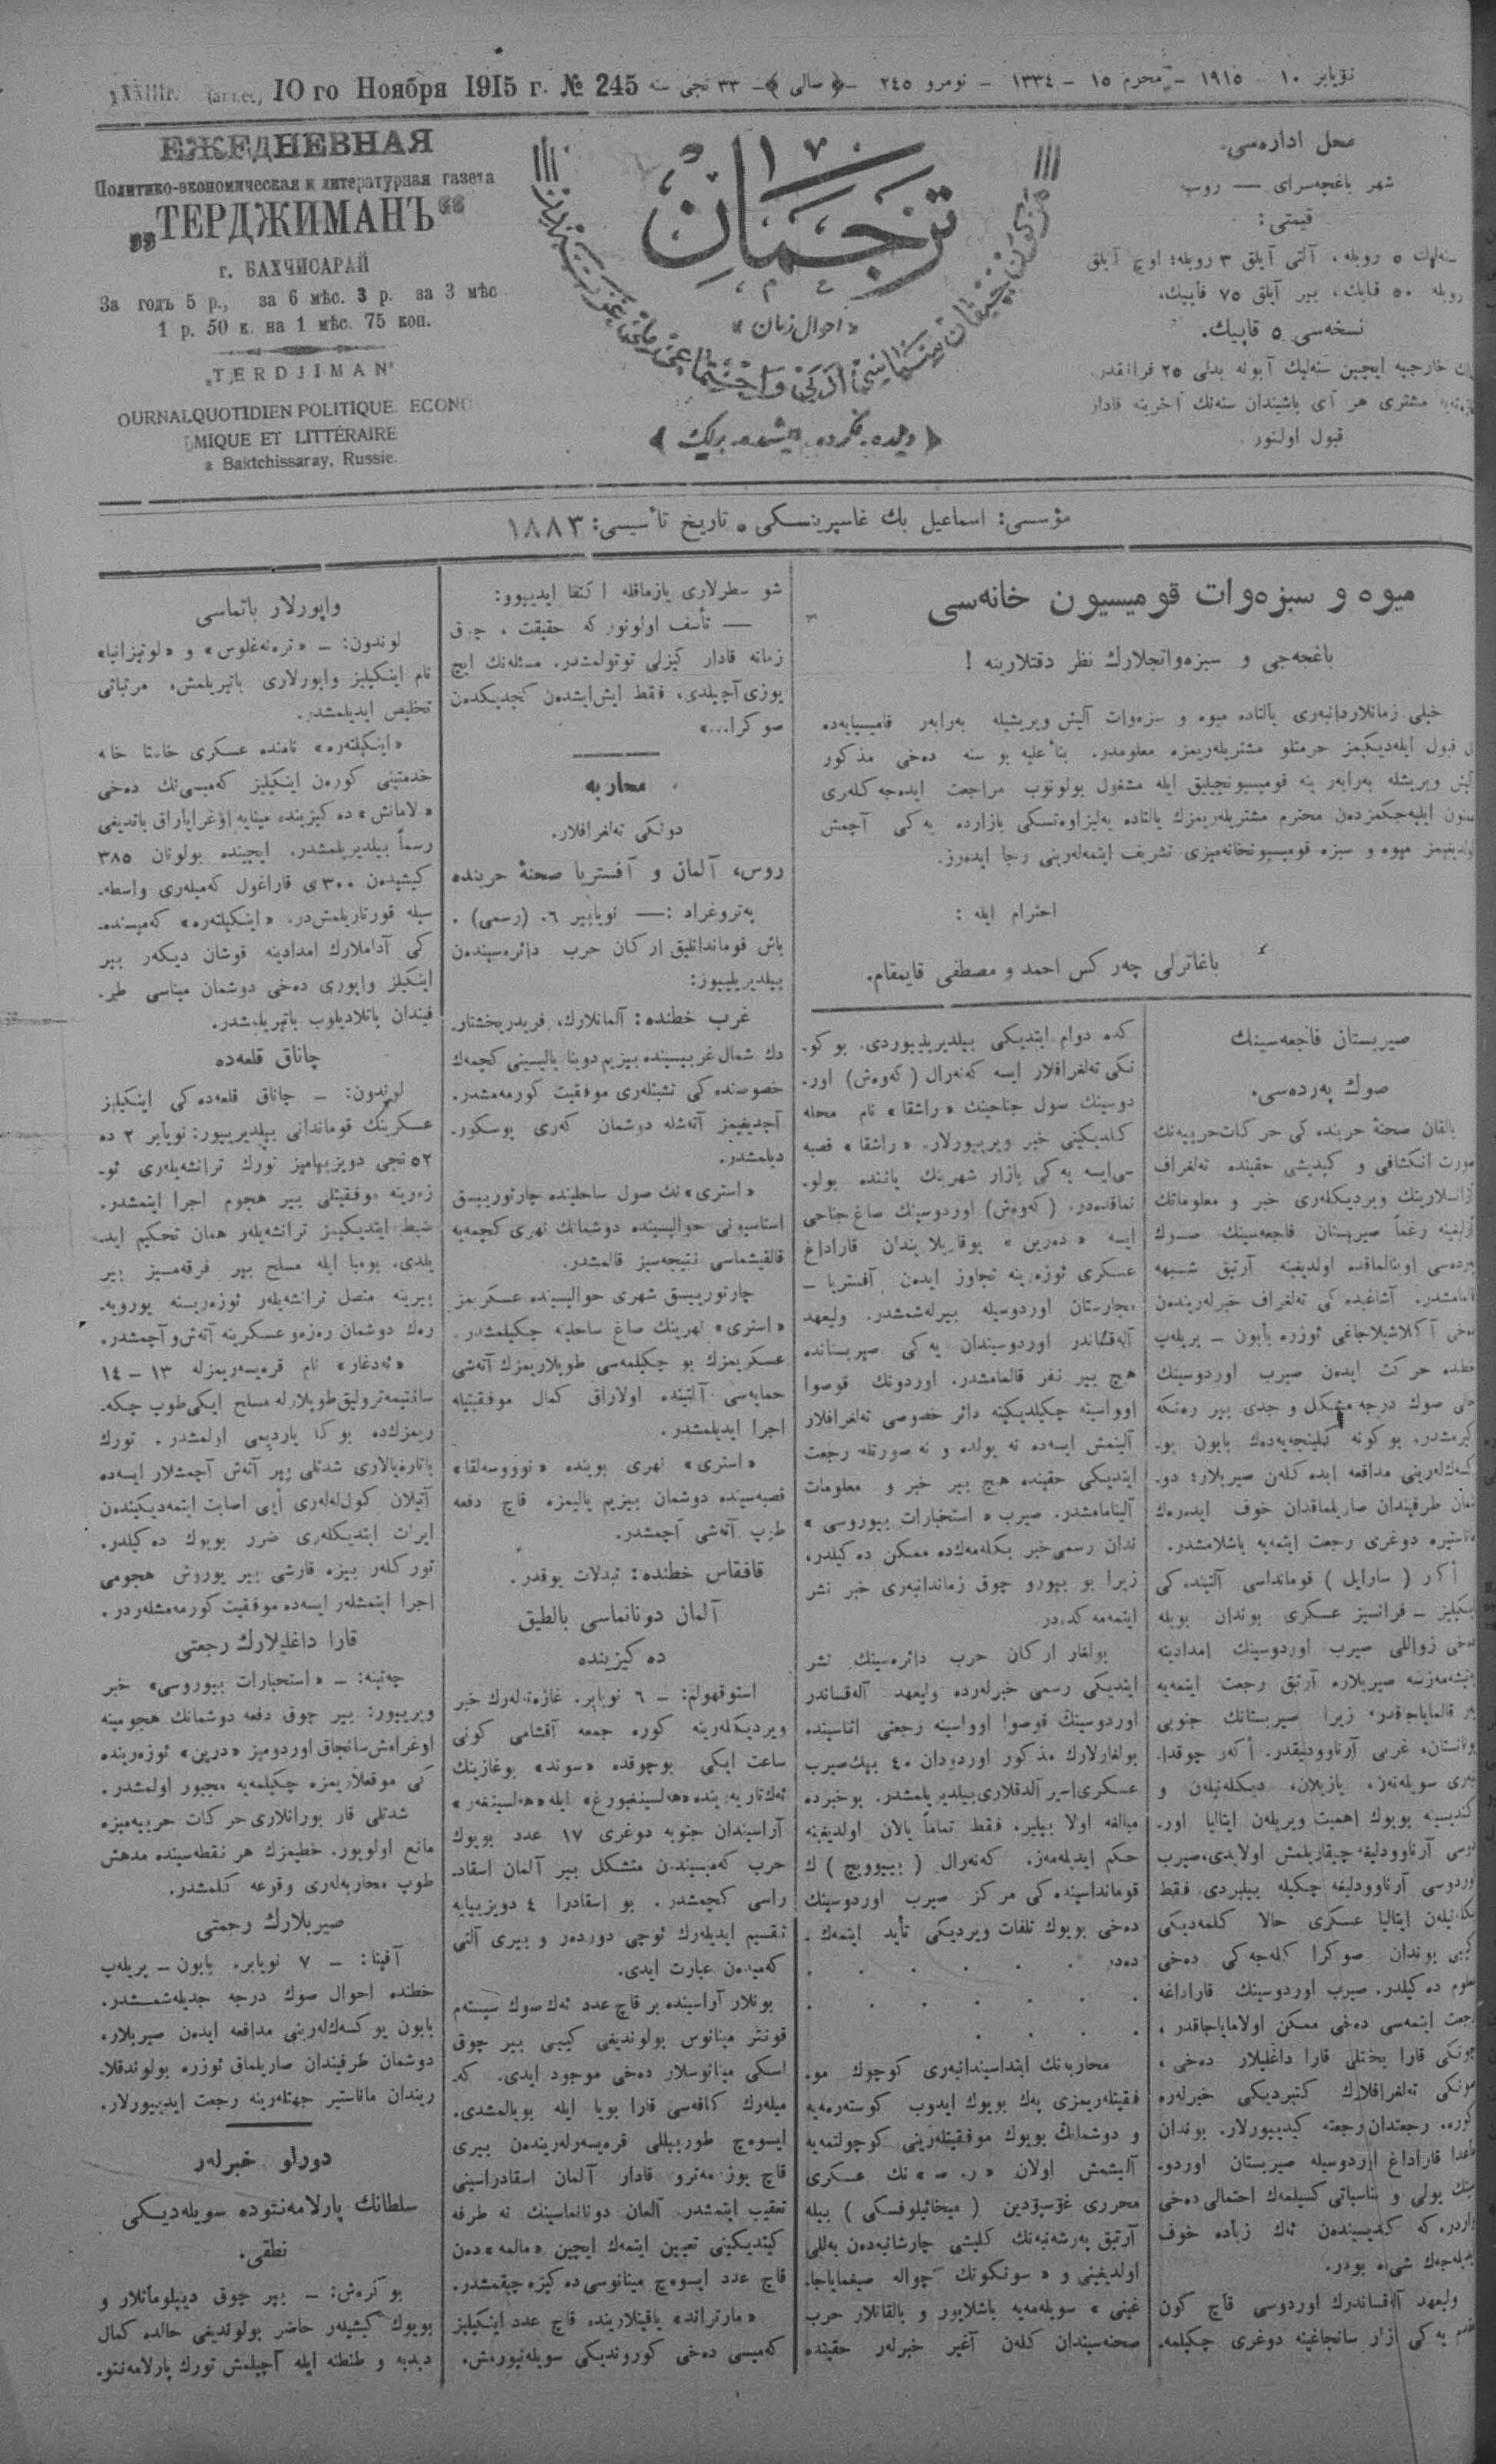 10го Ноября 1915 г. № 245 ٣٣ نجی سنه -﴿ صالی ﴾- نومرو ٢٤٥ - ١٣٣٤ - محرم ١٥ - ١٩١٥ نویابر ١٠
ЕЖЕДНЕВНАЯ
Политико-экономическая и литературная газета
„ТЕРДЖИМАНЪ“
г. БАХЧИСАРАЙ
За годъ 5 р., за 6 мѣс. 3 р. за 3 мѣс
1 р. 50 к. на 1 мѣс. 75 коп.
„TERDJIMAN“
OURNAL QUOTIDIEN POLITIQUE. ECONO
MIQUE ET LITTÉRAIRE
a Baktchissaray, Russie.
ترجمان
«احوال زمان»
﴿ دلده، فکرده، ایشده، برلك ﴾
محل اداره‌سی
شهر باغچه‌سرای — روسیه
قیمتی:
سنه‌لك ٥ روبله، آلتی آیلق ٣ روبله؛ اوچ آیلق
روبله ٥٠ قاپك، بیر آیلق ٧٥ قاپیك،
نسخه‌سی ٥ قاپیك.
خارجیه ایچین سنه‌لیك آبونه بدلی ٢٥ فرانقدر.
مشتری هر آی باشیندان سنه‌نك آخرینه قادار
قبول اولنور.
مؤسسی: اسماعیل بك غاسپرینسکی، تاریخ تأسیسی: ١٨٨٣
میوه و سبزه‌وات قومیسیون خانه‌سی
باغچه‌جی و سبزه‌واتجلارك نظر دقتلارینه !
خیلی زمانلاردانبه‌ری یالتاده میوه و سبزه‌وات آلیش ویریشیله به‌رابه‌ر
قبول ایله‌دیکیمز حرمتلو مشتریله‌ریمزه معلومدر. بناءً علیه بو سنه ده‌خی مذکور
آلیش ویریشله به‌رابه‌ر ینه قومیسیونجیلیق ایله مشغول بولونوب مراجعت ایده‌جه کله‌ری
ممنون ایلیه‌جکمزده‌ن محترم مشتریله‌ریمزك یالتاده یه‌لیزاوه‌تسکی بازارده یه‌کی آچمش
اولدیغیمز میوه و سبزه قومیسیونخانه‌میزی تشریف ایتمه‌له‌رینی رجا ایده‌رز.
احترام ایله :
باغاترلی چه‌رکس احمد و مصطفی قایمقام.
صیربستان فاجعه‌سینك
صوك په‌رده‌سی.
بالقان صحنهٔ حربنده کی حرکات حربیه‌نك
صورت انکشافی و کیدیشی حقینده ته‌لغراف
ویردیکله‌ری خبر و معلوماتك
رغماً صیربستان فاجعه‌سینك صوك
په‌رده‌سی اوینالماقده اولدیغینه آرتیق شبهه
قالمامشدر. آشاغیده کی ته‌لغراف خبرله‌رینده‌ن
ده‌خی آکلاشیلاجاغی ئوزره بابون - پریله‌پ
خطنده حرکت ایده‌ن صیرب اوردوسینك
حالی صوك درجه مشکل و جدی بیر ره‌نکه
کیرمشدر. بو کونه کلینجیه‌ده‌ك بابون بو-
که‌له‌رینی مدافعه ایده کله‌ن صیربلار؛ دو-
شمان طرفیندان صاریلماقدان خوف ایده‌ره‌ك
ماناستیره دوغری رجعت ایتمه‌یه باشلامشدر.
أکر ( سارایل ) قومانداسی آلتینده کی
اینکیلیز - فرانسیز عسکری بوندان بویله
ده‌خی زواللی صیرب اوردوسینك امدادینه
یتیشه‌مه‌زسه صیربلاره آرتیق رجعت ایتمه‌یه
یه‌ر قالمایاجاقدر، زیرا صیربستانك جنوبی
یونانستان، غربی آرناوودلیقدر. أکه‌ر چوقدا-
نبه‌ری سویله‌نه‌ن، یازیلان، دیکله‌نیله‌ن و
کندیسینه بویوك اهمیت ویریله‌ن ایتالیا اور-
دوسی آرناوودلیغه چیقاریلمش اولایدی، صیرب
اوردوسی آرناوودلیغه چکیله بیلیردی. فقط
ایتالیا عسکری حالا کلمه‌دیکی
کیبی بوندان صوکرا کله‌جه‌کی ده‌خی
معلوم ده‌کیلدر. صیرب اوردوسینك قاراداغه
رجعت ایتمه‌سی ده‌خی ممکن اولامایاجاقدر،
چونکی قارا بختلی قارا داغلیلار ده‌خی،
صونکی ته‌لغرافلارك کتیردیکی خبرله‌ره
کوره، رجعتدان رجعته کیدییورلار. بوندان
ماعدا قاراداغ اوردوسیله صیربستان اوردو-
سینك یولی و مناسباتی کسیلمه‌ك احتمالی ده‌خی
واردر، که کندیسینده‌ن ئه‌ك زیاده خوف
ایدیله‌جه‌ك شی، بودر.
ولیعهد آله‌قساندرك اوردوسی قاچ کون
یه‌کی بازار سانجاغینه دوغری چکیلمه-
کده دوام ایتدیکی بیلدیریلییوردی. بو کو-
نکی ته‌لغرافلار ایسه که‌نه‌رال (که‌وه‌ش) اور-
دوسینك سول جناحینك «راشقا» نام محله
کلدیکینی خبر ویرییورلار. «راشقا» قصبه
سی‌ایسه یه‌کی بازار شهرینك یاننده بولو-
نماقده‌در. (که‌وه‌ش) اوردوسینك صاغ جناحی
ایسه «ده‌رین» یوقاریلاریندان قاراداغ
عسکری ئوزه‌رینه تجاوز ایده‌ن آفستریا -
مجارستان اوردوسیله بیرله‌شمشدر. ولیعهد
آله‌قساندر اوردوسیندان یه‌کی صیربستانده
هیچ بیر نفر قالمامشدر. اوردونك قوصوا
اوواسینه چکیلدیکینه دائر خصوصی ته‌لغرافلار
آلینمش ایسه‌ده نه یولده و نه صورتله رجعت
ایتدیکی حقینده هیچ بیر خبر و معلومات
آلینامامشدر. صیرب «استخبارات بیوروسی»
ندان رسمی خبر بکله‌مه‌ك‌ده ممکن ده‌کیلدر،
زیرا بو بیورو چوق زماندانبه‌ری خبر نشر
ایتمه‌مه کده‌در.
بولغار ارکان حرب دائره‌سینك نشر
ایتدیکی رسمی خبرله‌رده ولیعهد آله‌قساندر
اوردوسینك قوصوا اوواسینه رجعتی اثناسینده
بولغارلارك مذکور اوردودان ٤٠ بیك صیرب
عسکری اسیر آلدقلاری بیلدیریلمشدر. بو خبرده
مبالغه اولا بیلیر. فقط تماماً یالان اولدیغینه
حکم ایدیله‌مه‌ز. که‌نه‌رال ( بییوویچ ) ك
قومانداسینده کی مرکز صیرب اوردوسینك
ده‌خی بویوك تلفات ویردیکی تأید ایتمه‌ك-
ده‌در . . . . . .
محاربه‌نك ابتداسیندانبه‌ری کوچوك مو-
فقیتله‌ریمزی په‌ك بویوك ایدوب کوسته‌رمه‌یه
و دوشمانك بویوك موفقیتله‌رینی کوچولتمه‌یه
آلیشمش اولان «ر. س» نك عسکری
محرری غوسپودین ( میخائیلوفسکی ) بیله
آرتیق په‌رشه‌نبه‌نك کلیشی چارشانبه‌ده‌ن به‌للی
اولدیغینی و «سونکونك چواله صیغمایاجا-
غینی» سویله‌مه‌یه باشلایور و بالقانلار حرب
صحنه‌سیندان کله‌ن آغیر خبرله‌ر حقینده
شو سطرلاری یازماقله اکتفا ایدییوو:
— تأسف اولونور که حقیقت، چوق
زمانه قادار کیزلی توتولمشدر. مسئله‌نك ایچ
یوزی آچیلدی، فقط ایش ایشده‌ن کچدیکده‌ن
صوکرا...»
محاربه
دونکی ته‌لغرافلار.
روس، آلمان و آفستریا صحنهٔ حربنده
په‌تروغراد :— نویابیر ٦. (رسمی).
باش قوماندانلیق ارکان حرب دائره‌سینده‌ن
بیلدیریلییور:
غرب خطنده: آلمانلارك، فریدریخشتا-
دك شمال غربیسینده بیزیم دوینا یالیسینی کچمه‌ك
خصوصنده کی تشبثله‌ری موفقیت کورمه‌مشدر.
آچدیغیمز آته‌شله دوشمان که‌ری پوسکور-
دیلمشدر.
«استری» نك صول ساحلینده چارتورییسق
استاسیونی حوالیسینده دوشمانك نهری کچمه‌یه
قالقیشماسی نتیجه‌سیز قالمشدر.
چارتورییسق شهری حوالیسینده عسکریمز
«استری» نهرینك صاغ ساحلینه چکیلمشدر.
عسکریمزك بو چکیلمه‌سی طوپلاریمزك آته‌شی
حمایه‌سی آلتینده اولاراق کمال موفقیتیله
اجرا ایدیلمشدر.
«استری» نهری بوینده «نوووسه‌لقا»
قصبه‌سینده دوشمان بیزیم یالیمزه قاچ دفعه
طوپ آته‌شی آچمشدر.
قافقاس خطنده: تبدلات یوقدر.
آلمان دونانماسی بالطیق
ده‌کیزینده
استوقهولم: - ٦ نویابر. غازه‌ته‌له‌رك خبر
ویردیکله‌رینه کوره جمعه آقشامی کونی
ساعت ایکی بوچوقده «سوند» بوغازینك
«هه‌لسینغبورغ» ایله «هه‌لسینغه‌ر»
آراسیندان جنوبه دوغری ١٧ عدد بویوك
حرب که‌میسینده‌ن متشکل بیر آلمان اسقاد-
راسی کچمشدر. بو اسقادرا ٤ دویزییایه
تقسیم ایدیله‌رك ئوچی دورده‌ر و بیری آلتی
که‌میده‌ن عبارت ایدی.
بونلار آراسینده بر قاچ عدد ئه‌ك صوك سیستم
قونتر مینانوس بولوندیغی کیبی بیر چوق
اسکی مینانوسلار ده‌خی موجود ایدی. که-
میله‌رك کافه‌سی قارا بویا ایله بویالمشدی.
ایسوه‌چ طورپیللی قره‌یسه‌رله‌رینده‌ن بیری
قاچ یوز مه‌ترو قادار آلمان اسقادراسینی
تعقیب ایتمشدر. آلمان دونانماسینك نه طرفه
کیتدیکینی تعیین ایتمه‌ك ایچین «مالمه» ده‌ن
قاچ عدد ایسوه‌چ مینانوسی ده‌کیزه چیقمشدر.
«مارتراند» یاقینلارینده قاچ عدد اینکیلیز
که‌میسی ده‌خی کوروندیکی سویله‌نیورمش.
واپورلار باتماسی
لوندون: - «تره‌نه‌غلوس» و «لوتپزانیا»
نام اینکیلیز واپورلاری باتیریلمش، مرتباتی
تخلیص ایدیلمشدر.
«اینکیلته‌ره» نامنده عسکری خاستا خانه
خدمتینی کوره‌ن اینکیلیز که‌میسی‌نك ده‌خی
«لامانش» ده‌کیزینده مینایه اوغرایاراق باتدیغی
رسماً بیلدیریلمشدر. ایچینده بولونان ٣٨٥
کیشیده‌ن ٣٠٠ی قاراغول که‌میله‌ری واسطه-
سیله قورتاریلمش‌در. «اینکیلته‌ره» که‌میسنده-
کی آداملارك امدادینه قوشان دیکه‌ر بیر
اینکیلیز واپوری ده‌خی دوشمان میناسی طر-
فیندان پاتلادیلوب باتیریلمشدر.
چاناق قلعه‌ده
لوندون: - چاناق قلعه‌ده کی اینکیلیز
عسکرینك قوماندانی بیلدیرییور: نویابر ٢ ده
٥٢ نجی دویزییامیز تورك ترانشه‌یله‌ری ئو-
زه‌رینه موفقیتلی بیر هجوم اجرا ایتمشدر.
ضبط ایتدیکیمز ترانشه‌یله‌ر همان تحکیم ایدی-
یلدی. بومبا ایله مسلح بیر فرقه‌میز بیر
بیرینه متصل ترانشه‌یله‌ر ئوزه‌رینه یورویه-
ره‌ك دوشمان ره‌زه‌رو عسکرینه آته‌ش آچمشدر.
«ئه‌دغار» نام قره‌یسه‌ریمزله ١٣ - ١٤
سانتیمه‌ترولیق طوپلارله مسلح ایکی طوپ چکه-
ریمزك‌ده بو کا یاردیمی اولمشدر. تورك
باتاره‌یالاری شدتلی بیر آته‌ش آچمشلار ایسه‌ده
آتیلان کولله‌له‌ری أیی اصابت ایتمه‌دیکینده‌ن
ایراث ایتدیکله‌ری ضرر بویوك ده‌کیلدر.
تورکله‌ر بیزه قارشی بیر یوروش هجومی
اجرا ایتمشله‌ر ایسه‌ده موفقیت کورمه‌مشله‌ردر.
قارا داغلیلارك رجعتی
چه‌تینه: - «استخبارات بیوروسی» خبر
ویرییور: بیر چوق دفعه دوشمانك هجومینه
اوغرامش سانجاق اوردومیز «درین» ئوزه‌رینده
کی موقعلاریمزه چکیلمه‌یه مجبور اولمشدر.
شدتلی قار بورانلاری حرکات حربیه‌میزه
مانع اولویور. خطیمزك هر نقطه‌سینده مدهش
طوپ محاربه‌له‌ری وقوعه کلمشدر.
صیربلارك رجعتی
آفینا: - ٧ نویابر. بابون - پریله‌پ
خطنده احوال صوك درجه جدیله‌شمشدر.
بابون بوکسه‌كله‌رینی مدافعه ایده‌ن صیربلار،
دوشمان طرفیندان صاریلماق ئوزره بولوندقلا-
ریندان ماناستیر جهتله‌رینه رجعت ایدییورلار.
دورلو خبرله‌ر
سلطانك پارلامه‌نتوده سویله‌دیکی
نطقی.
بوکره‌ش: - بیر چوق دیپلوماتلار و
بویوك کیشیله‌ر حاضر بولوندیغی حالده کمال
دبدبه و طنطنه ایله آچیلمش تورك پارلامه‌نتو-